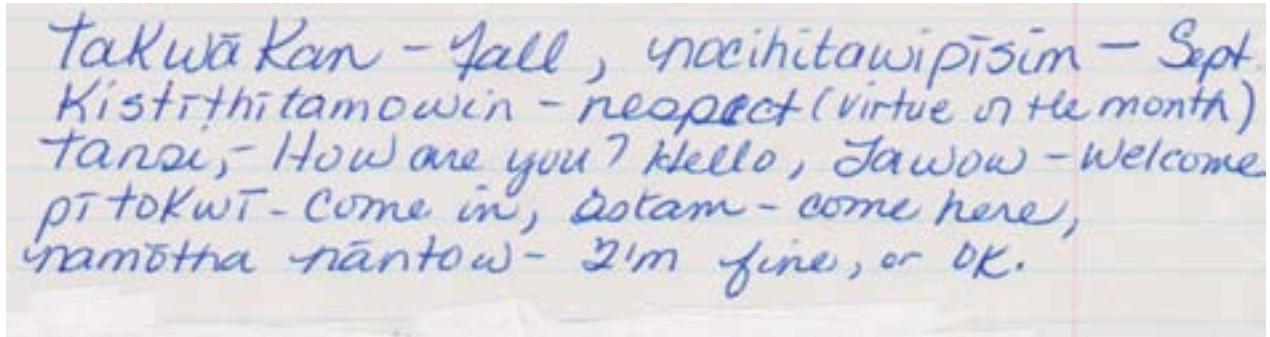 Takwākan - fall, nocihitawipīsim - Sept.
Kistīthītamowin - respect (virtue of the month)
Tansi, - How are you? Hello, Tawow - Welcome
pītokwī - Come in, astam - come here,
namōtha nāntow - I'm fine, or OK.